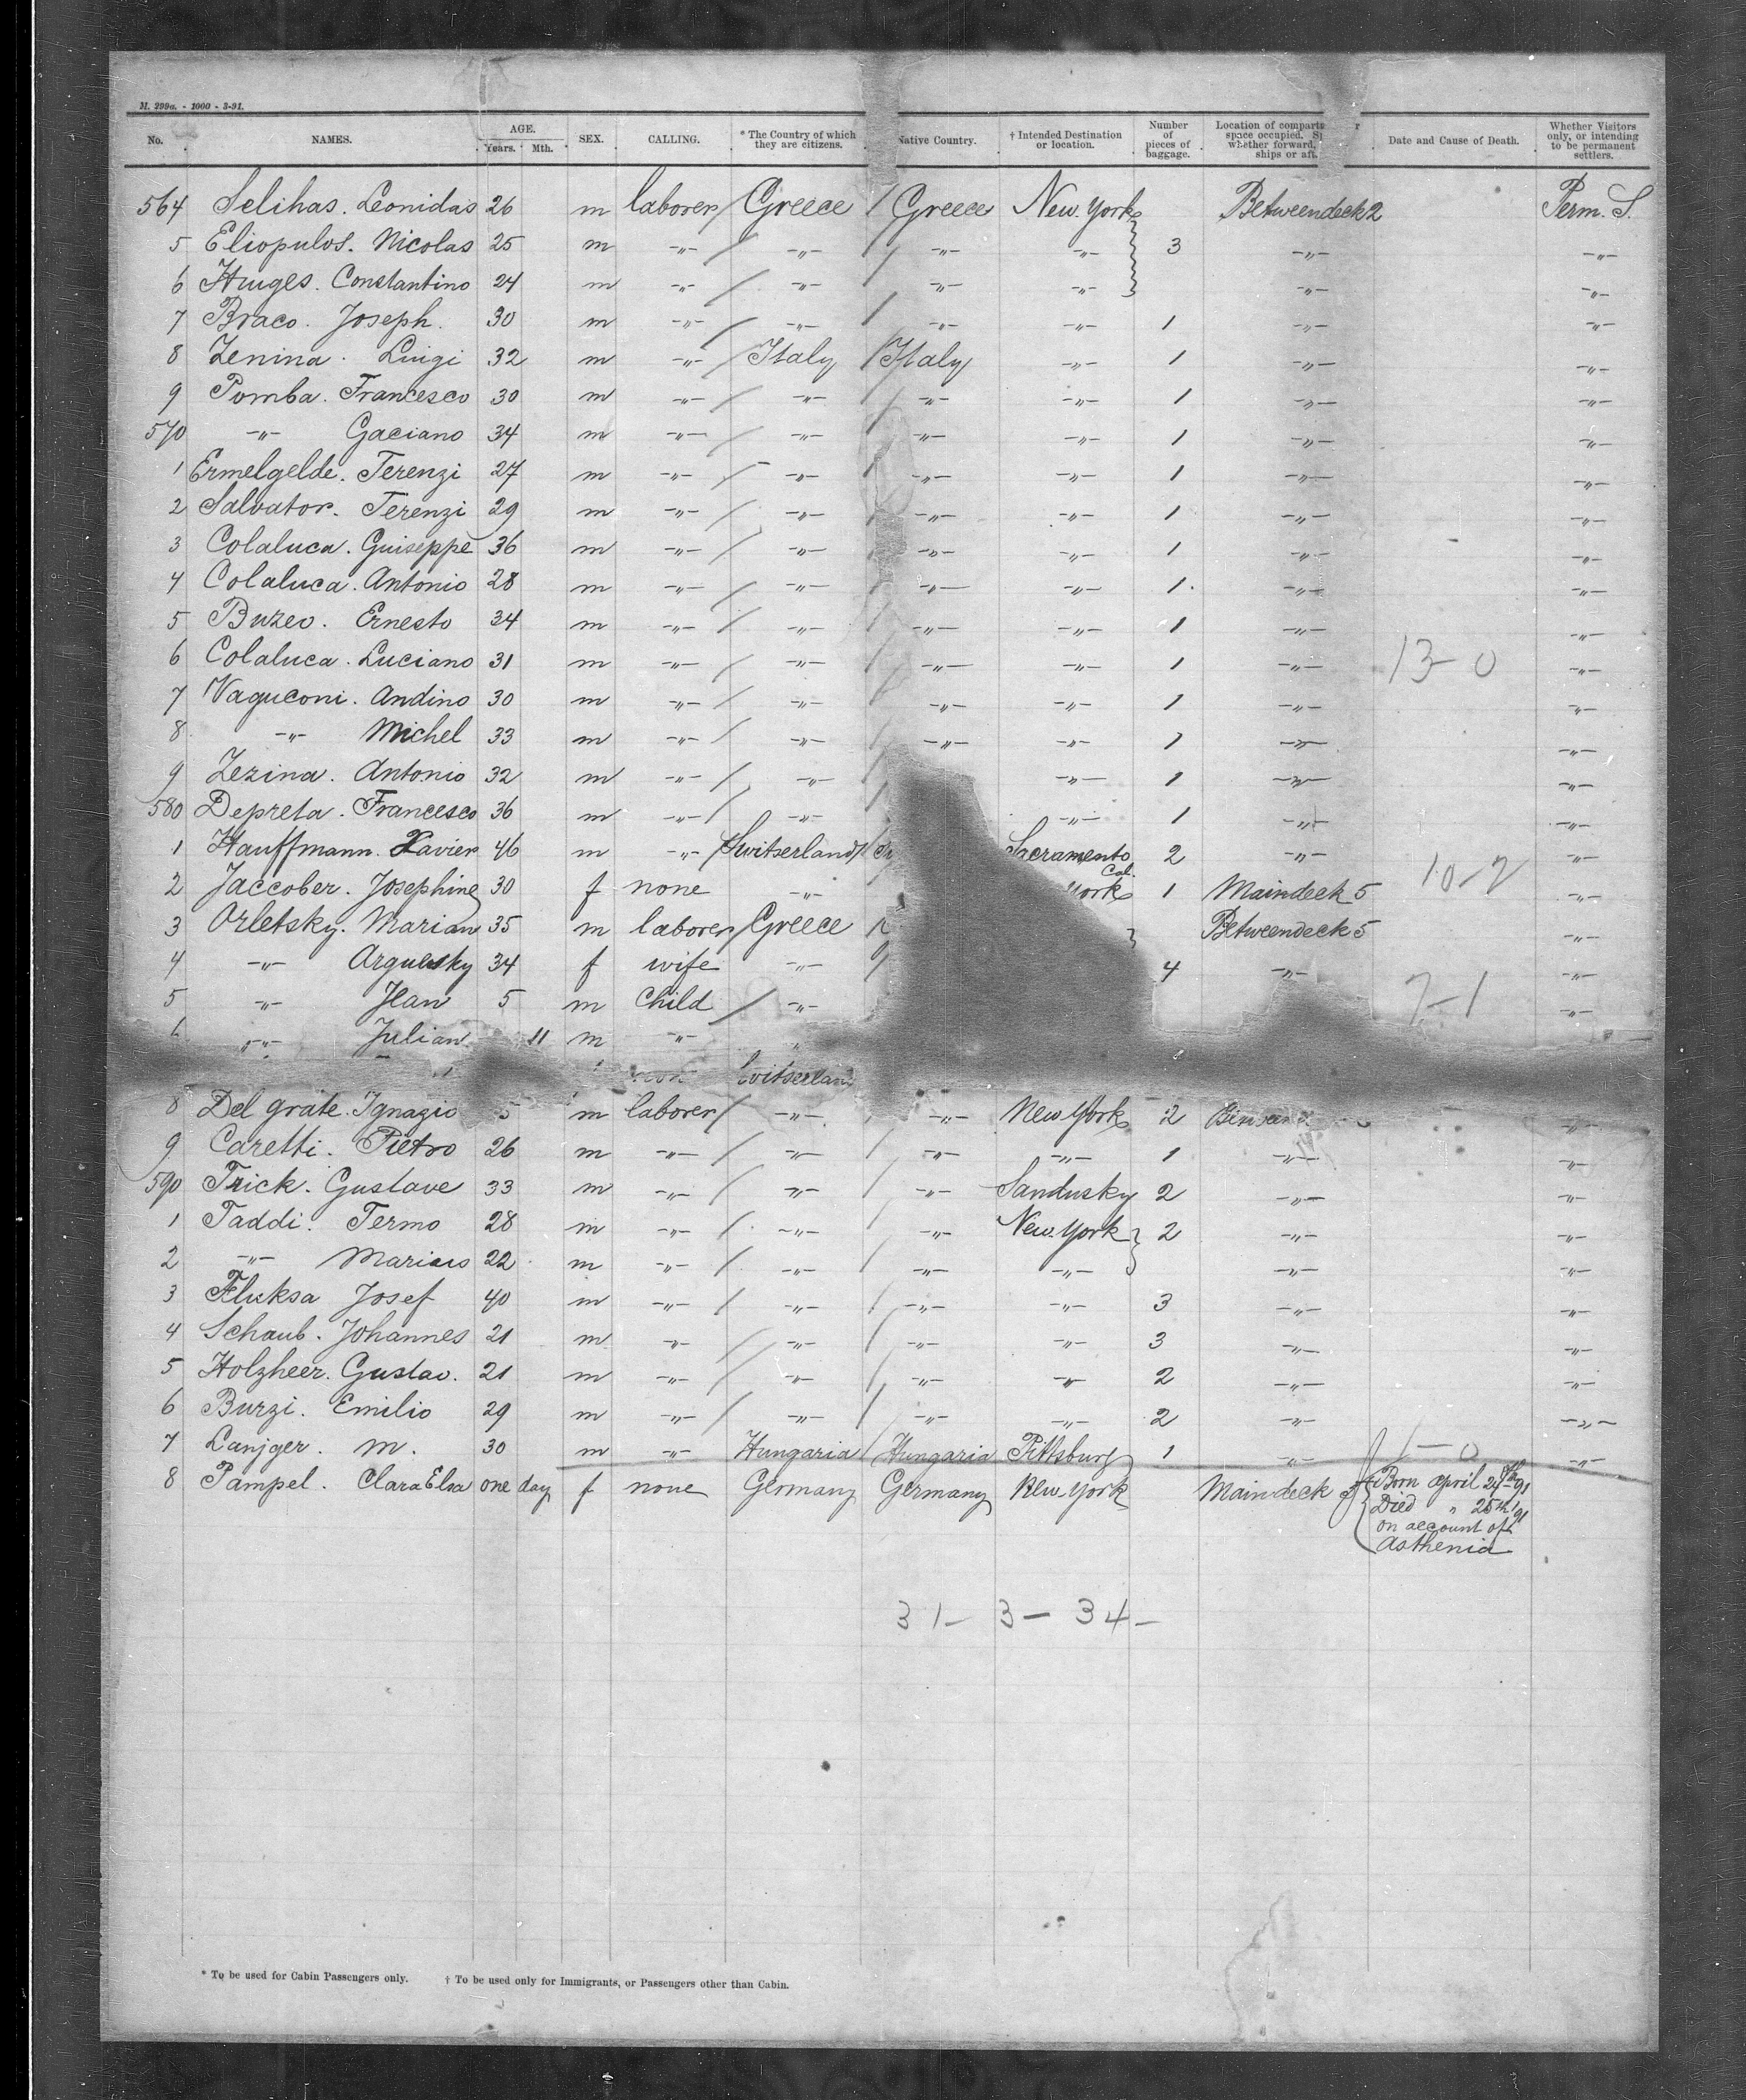 M. 299a. - 1000 - 3-91.
No. NAMES. AGE. Years. Mth. SEX. CALLING. * The Country of which they are citizens. Native Country. † Intended Destination or location. Number of pieces of baggage. Location of compartm space occupied. whether forward, ships or aft. Date and Cause of Death. Whether Visitors only, or intending to be permanent settlers.
564 Selihas. Leonidas 26 m laborer / Greece / Greece New York Betweendeck 2 Perm. S.
5 Eliopulos. Nicolas 25 m -"- / -"- / -"- -"- 3 -"- -"-
6 Huges. Constantino 24 m -"- / -"- / -"- -"- -"- -"-
7 Braco. Joseph. 30 m -"- / -"- / -"- -"- 1 -"- -"-
8 Zenina. Luigi 32 m -"- / Italy / Italy -"- 1 -"- -"-
9 Pomba. Francesco 30 m -"- / -"- / -"- -"- 1 -"- -"-
570 -"- Gaciano 34 m -"- / -"- / -"- -"- 1 -"- -"-
1 Ermelgelde. Terenzi 27 m -"- / -"- / -"- -"- 1 -"- -"-
2 Salvator. Terenzi 29 m -"- / -"- / -"- -"- 1 -"- -"-
3 Colaluca. Guiseppe 36 m -"- / -"- -"- -"- 1 -"- -"-
4 Colaluca. Antonio 28 m -"- / -"- / -"- -"- 1 -"- -"-
5 Buzeo. Ernesto 34 m -"- / -"- / -"- -"- 1 -"- -"-
6 Colaluca. Luciano 31 m -"- / -"- / -"- -"- 1 -"- 13-0 -"-
7 Vaguconi. Andino 30 m -"- / -"- / -"- -"- 1 -"- -"-
8 -"- Michel 33 m -"- / -"- / -"- -"- 1 -"- -"-
9 Zezina. Antonio 32 m -"- / -"- / -"- 1 -"- -"-
580 Depreta. Francesco 36 m -"- / -"- / -"- 1 -"- -"-
1 Hauffmann. Xavier 46 m -"- / Switserland / Sacramento Cal. 2 -"- -"-
2 Jaccober. Josephine 30 f none -"- York 1 Maindeck 5 10-2 -"-
3 Orletsky. Marian 35 m laborer / Greece / Betweendeck 5 -"-
4 -"- 34 f wife -"- 4 -"- -"-
5 -"- Jean 5 m child / -"- 7-1 -"-
6 -"- Julian 11 m -"-
Switserland
8 Del grate. Ignazio 5 m laborer / -"- / -"- New York 2 -"-
9 Caretti. Pietro 26 m -"- / -"- / -"- -"- 1 -"- -"-
590 Frick. Gustave 33 m -"- / -"- / -"- Sandusky 2 -"- -"-
1 Taddi. Termo 28 m -"- / -"- / -"- New York 2 -"- -"-
2 -"- Marius 22 m -"- / -"- / -"- -"- -"- -"-
3 Fluksa Josef 40 m -"- / -"- / -"- -"- 3 -"- -"-
4 Schaub. Johannes 21 m -"- / -"- / -"- -"- 3 -"- -"-
5 Holzheer. Gustav. 21 m -"- / -"- / -"- -"- 2 -"- -"-
6 Burzi. Emilio 29 m -"- / -"- / -"- -"- 2 -"- -"-
7 Lanjger. M. 30 m -"- Hungaria / Hungaria Pittsburg 1 -"- 1-0 -"-
8 Pampel. Clara Elsa one day f none Germany Germany New York Maindeck Born April 24th 91
Died " 25th 91
on account of
Asthenia
31- 3- 34-
* To be used for Cabin Passengers only. † To be used only for Immigrants, or Passengers other than Cabin.